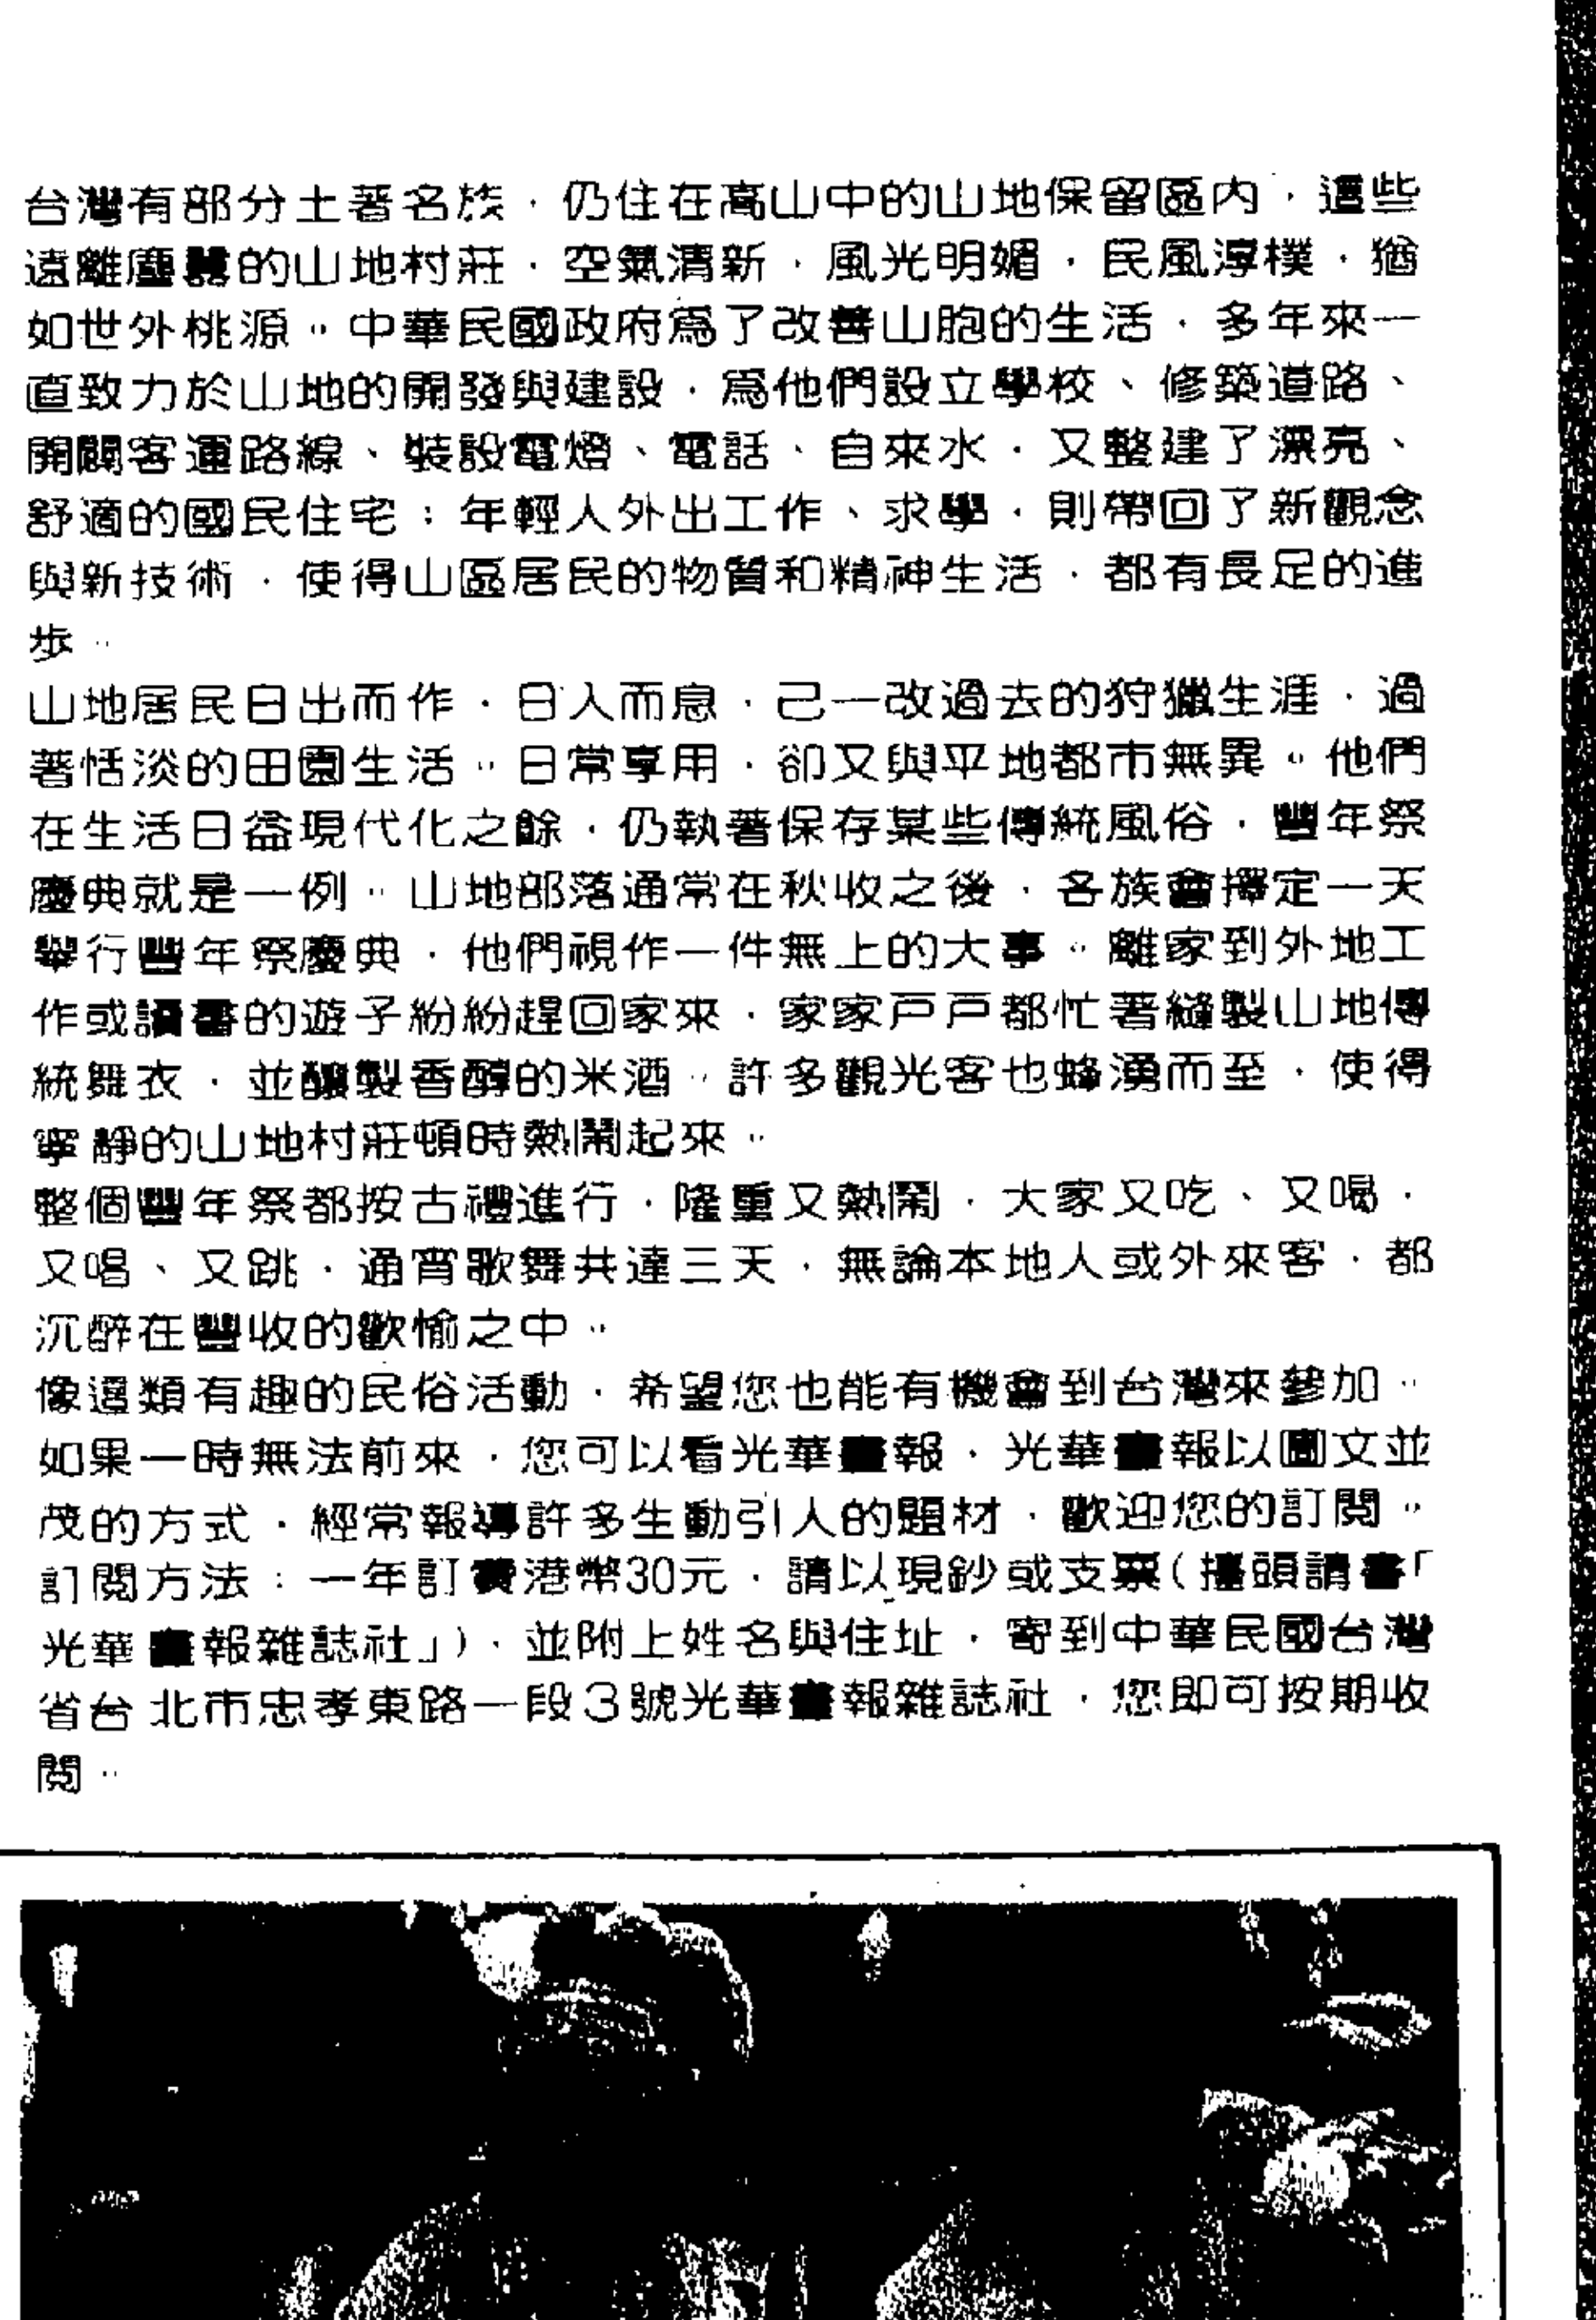 台灣有部分土著名族，仍住在高山中的山地保留區內，這些
遠離塵囂的山地村莊，空氣清新，風光明媚，民風淳樸，猶
如世外桃源。中華民國政府爲了改善山胞的生活，多年來一
直致力於山地的開發與建設，爲他們設立學校、修築道路、
開闢客運路線、裝設電燈、電話、自來水，又整建了漂亮、
舒適的國民住宅；年輕人外出工作、求學，則帶回了新觀念
與新技術，使得山區居民的物質和精神生活，都有長足的進
步。
山地居民日出而作，日入而息，己一改過去的狩獵生涯，過
著恬淡的田園生活。日常享用，卻又與平地都市無異。他們
在生活日益現代化之餘，仍執著保存某些傳統風俗，豐年祭
慶典就是一例。山地部落通常在秋收之後，各族會擇定一天
舉行豐年祭慶典，他們視作一件無上的大事。離家到外地工
作或讀書的遊子紛紛趕回家來，家家戶戶都忙著縫製山地傳
統舞衣，並釀製香醇的米酒。許多觀光客也蜂湧而至，使得
寧靜的山地村莊頓時熱鬧起來。
整個豐年祭都按古禮進行，隆重又熱鬧，大家又吃、又喝，
又唱、又跳，通宵歌舞共達三天，無論本地人或外來客，都
沉醉在豐收的歡愉之中。
像這類有趣的民俗活動，希望您也能有機會到台灣來參加。
如果一時無法前來，您可以看光華畫報，光華畫報以圖文並
茂的方式，經常報導許多生動引人的題材，歡迎您的訂閱。
訂閱方法：一年訂費港幣30元，請以現鈔或支票(擡頭請書「
光華畫報雜誌社」)，並附上姓名與住址，寄到中華民國台灣
省台北市忠孝東路一段3號光華畫報雜誌社，您即可按期收
閱。